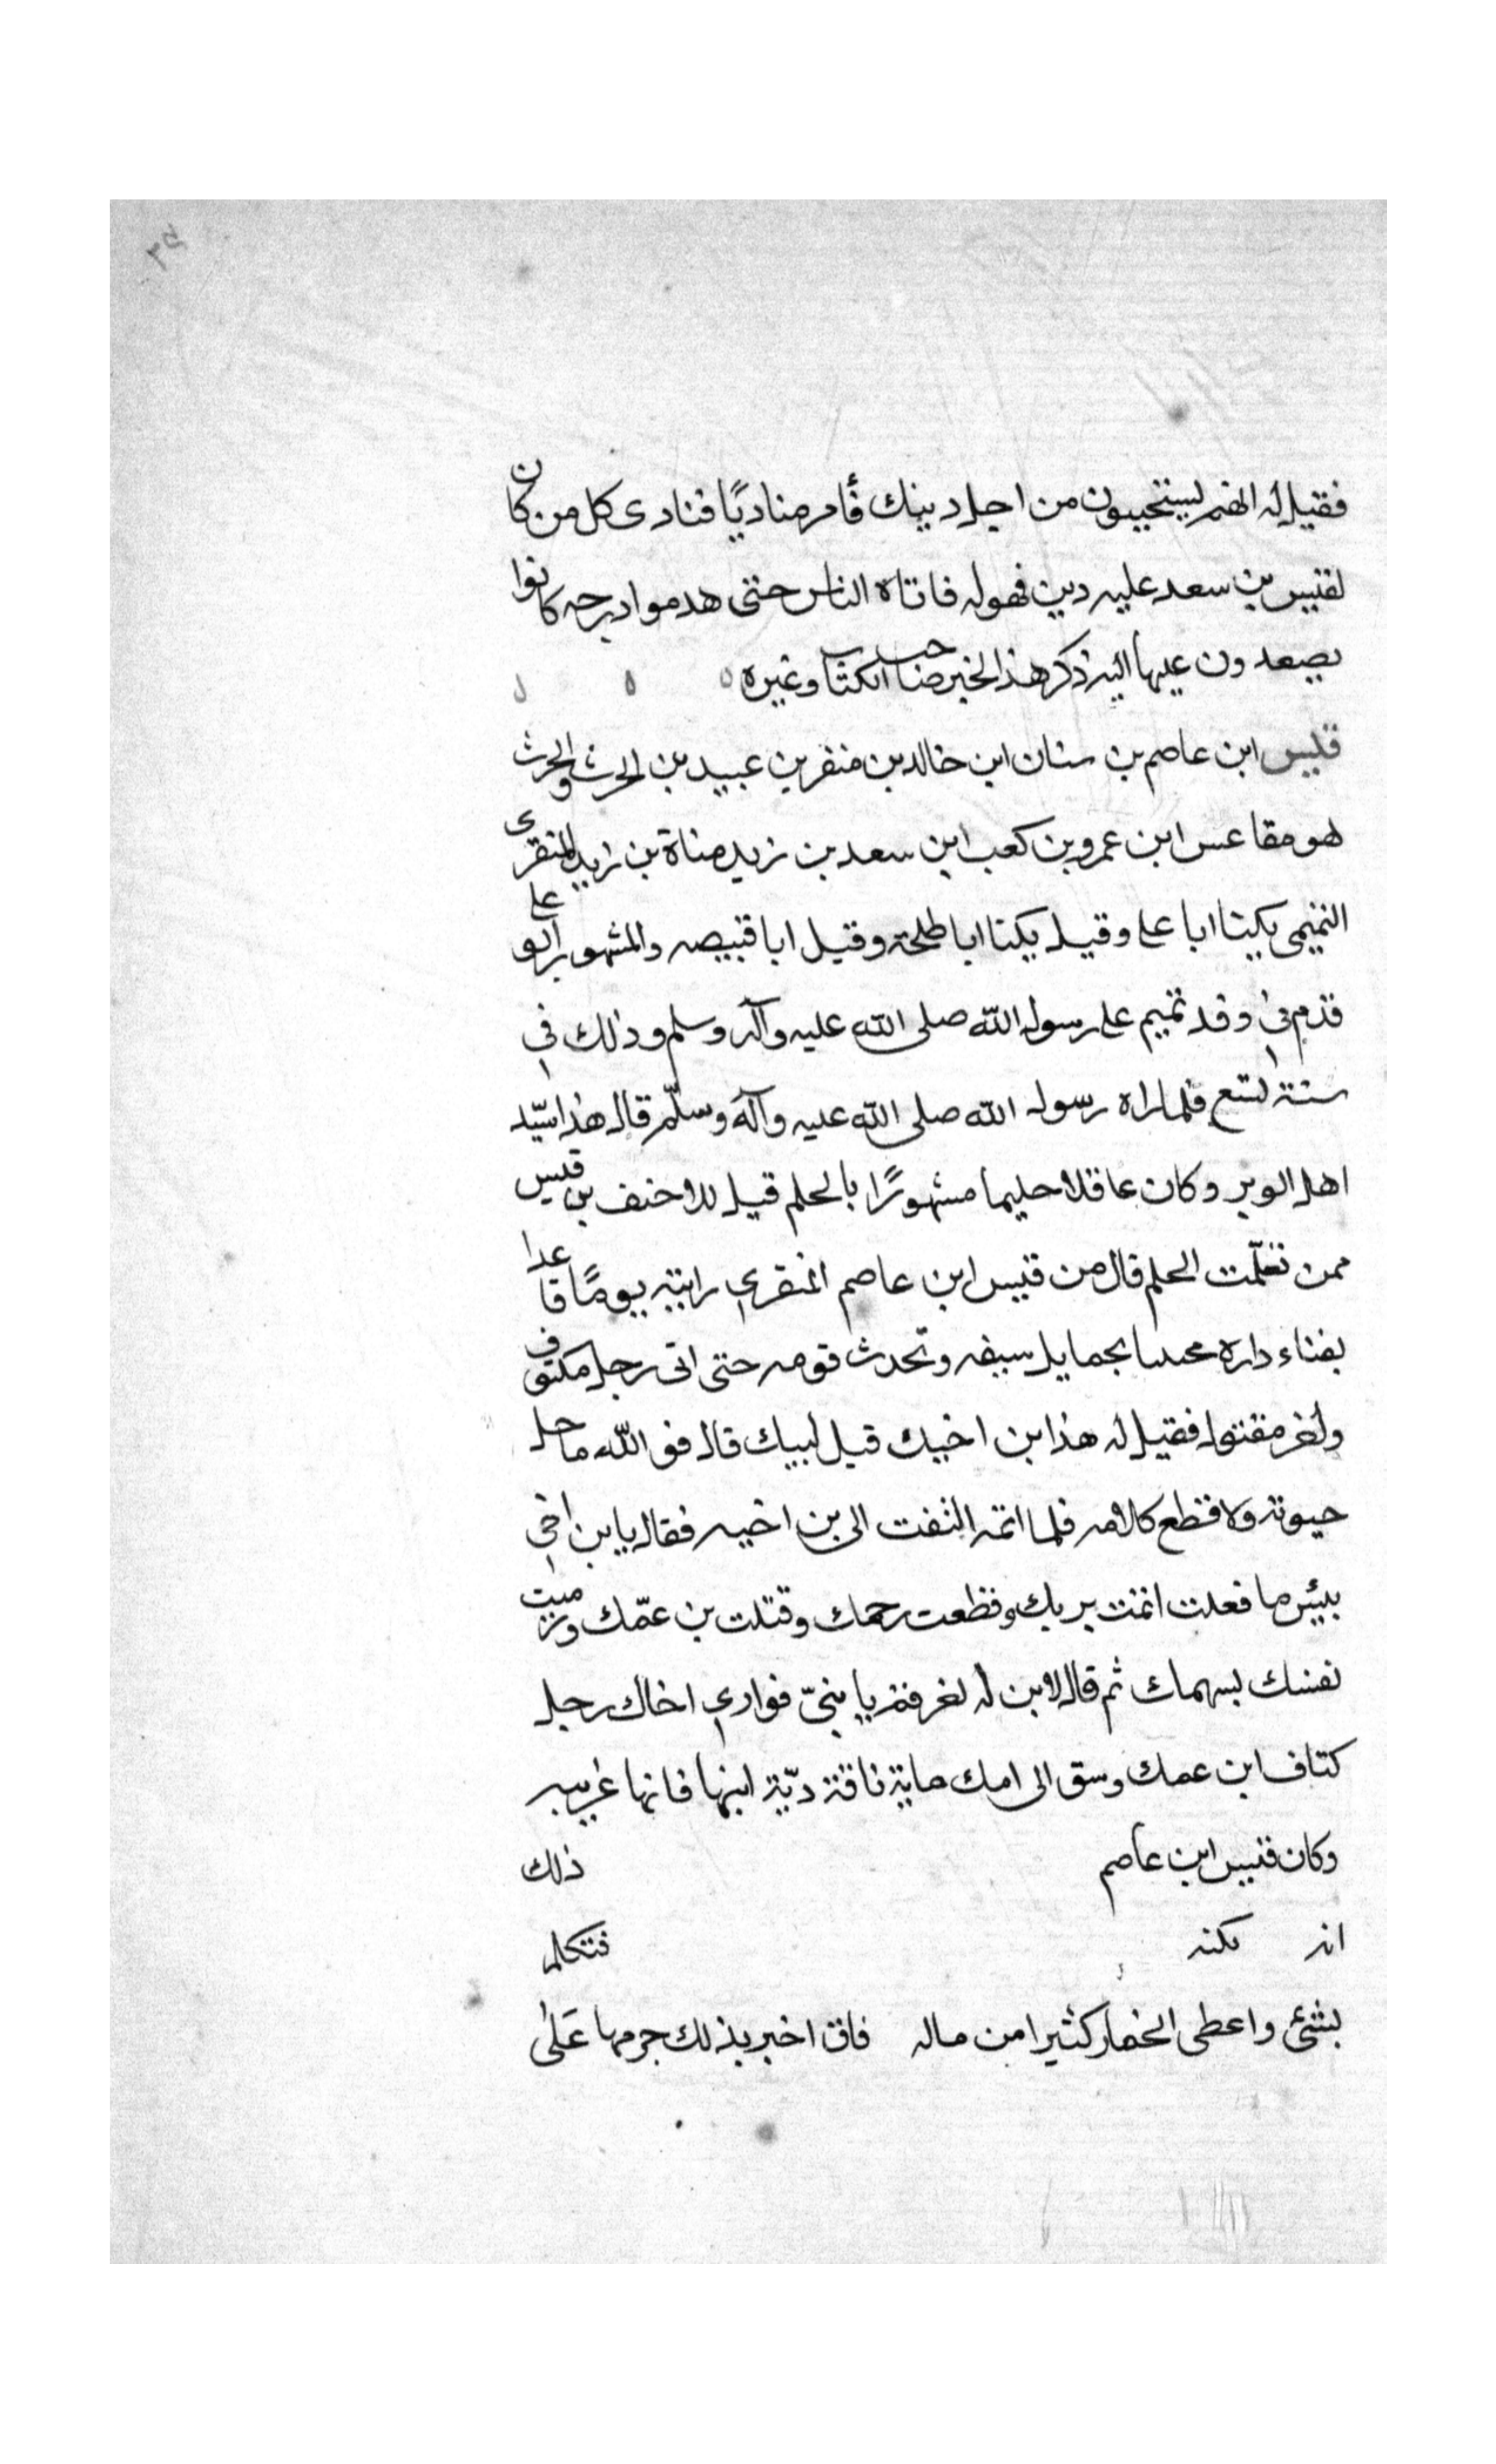 فقيل له انهم ليستحيون من اجل دينك فأمر مناديًا فنادى كل من كان
لقيس بن سعد عليه دين فهو له فاتاه الناس حتى هدموا درجه كانوا
يصعدون عليها اليه ذكر هذا الخبر صاحب الكتاب وغيره
قيس ابن عاصم بن سنان ابن خالد بن منقر بن عبيد بن الحرث والحرث
هو مقاعس ابن عمرو بن كعب ابن سعد بن زيد مناة بن زيد المنقرى
التميمى يكنا ابا على وقيل يكنا ابا طلحة وقيل ابا قبيصه والمشهور ابو على
قدم في وفد تميم على رسول الله صلى الله عليه وآله وسلم وذلك في
سنة تسع فلما راه رسول الله صلى الله عليه وآله وسلّم قال هذا سيّد
اهل الوبر وكان عاقلا حليما مشهورًا بالحلم قيل للاحنف بن قيس
ممن تعلّمت الحلم قال من قيس ابن عاصم المنقري رايته يومًا قاعدا
بفناء داره محتبيا بحمايل سيفه وتحدث قومه حتى اتى رجل مكتوف
ولخر مقتول فقيل له هذا بن اخيك قيل لبيك قال فو الله ما حل
حبوته ولا قطع كلامه فلما اتمه التفت الى بن اخيه فقال يا بن اخي
بيئس ما فعلت اثمت بربك وقطعت رحمك وقتلت بن عمّك ورميت
نفسك بسهمك ثم قال لابن له لخر قم يا بنيّ فواري اخاك وحل
كتاف ابن عمك وسق الى امك ماية ناقة ديّة ابنها فانها غريبه
وكان قيس ابن عاصم ذلك
انه عكنه فتكلم
بشئ واعطى الخمار كثيرا من ماله فاق اخبر بذلك حرمها عَلى